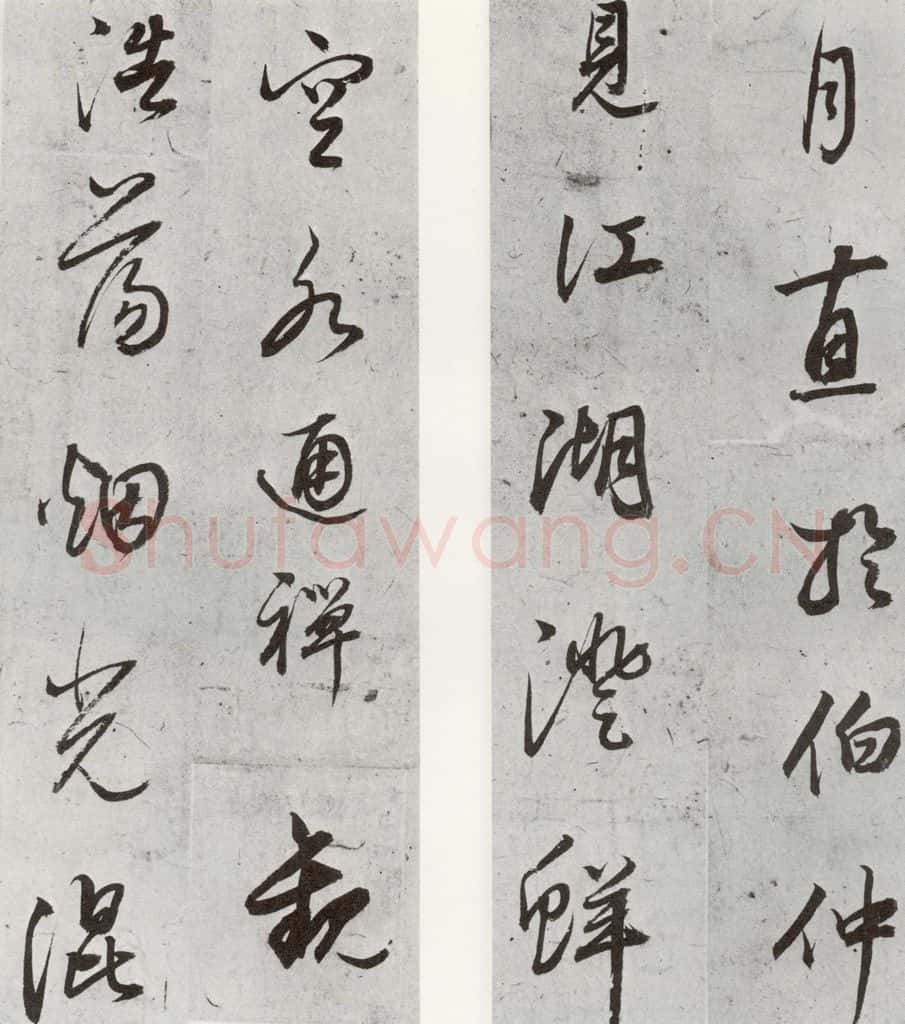 月直於伯仲
見江湖澄鮮
空水通禪觀
浩蕩烟光混
Shufawang.CN